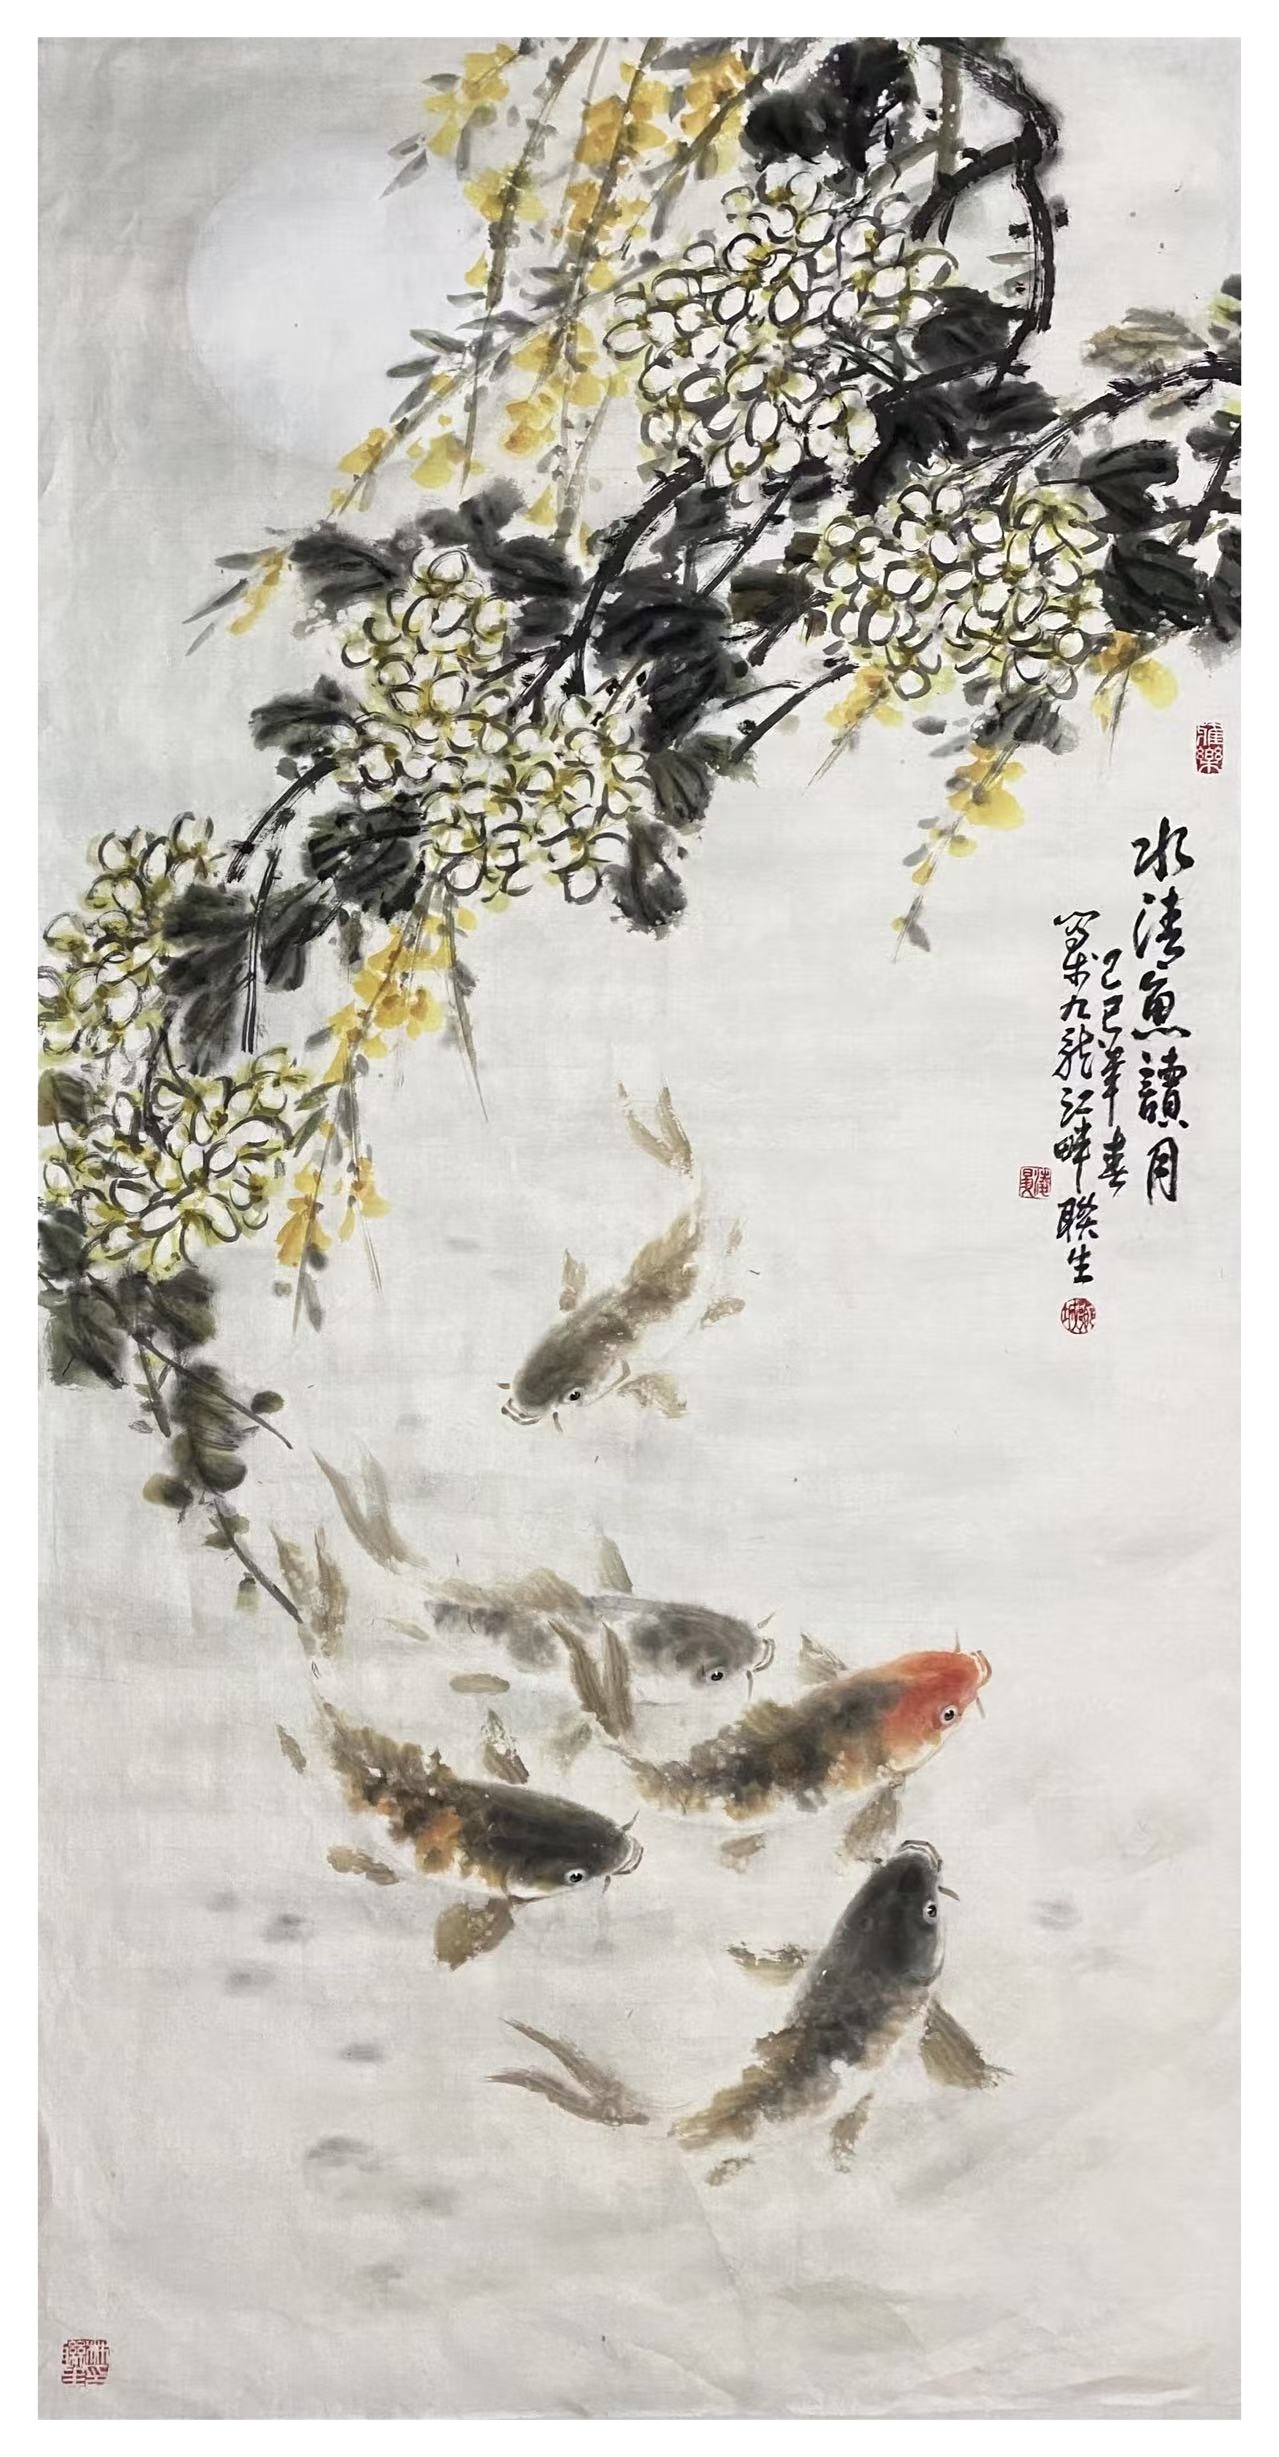 水清魚讀月
己巳年春
寫於九龍江畔聯生